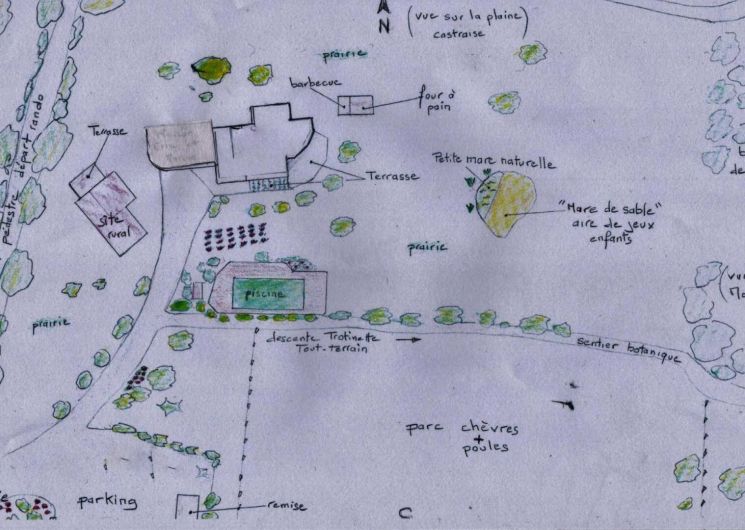 AN
(vue sur la plaine
castraise)
prairie
barbecue
four à
pain
Terrasse
pédestre départ rando
Terrasse
Petite mare naturelle
gîte
rural
"Mare de sable"
aire de jeux
enfants
prairie
piscine
prairie
descente Trotinette
Tout-terrain
sentier botanique
parc chèvres
+
poules
parking
remise
C
(vu
de